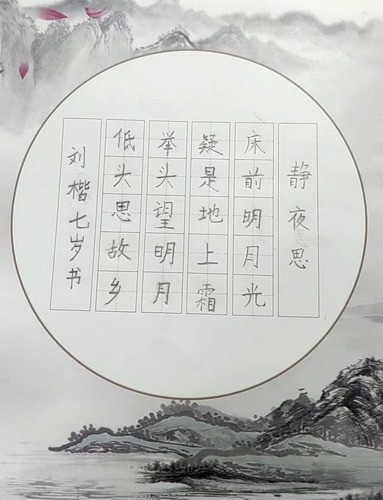 静夜思
床前明月光
疑是地上霜
举头望明月
低头思故乡
刘楷七岁书